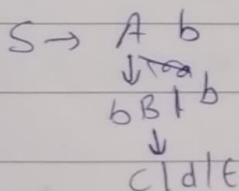 S → A b
↓
b B | b
↓
c | d | ε